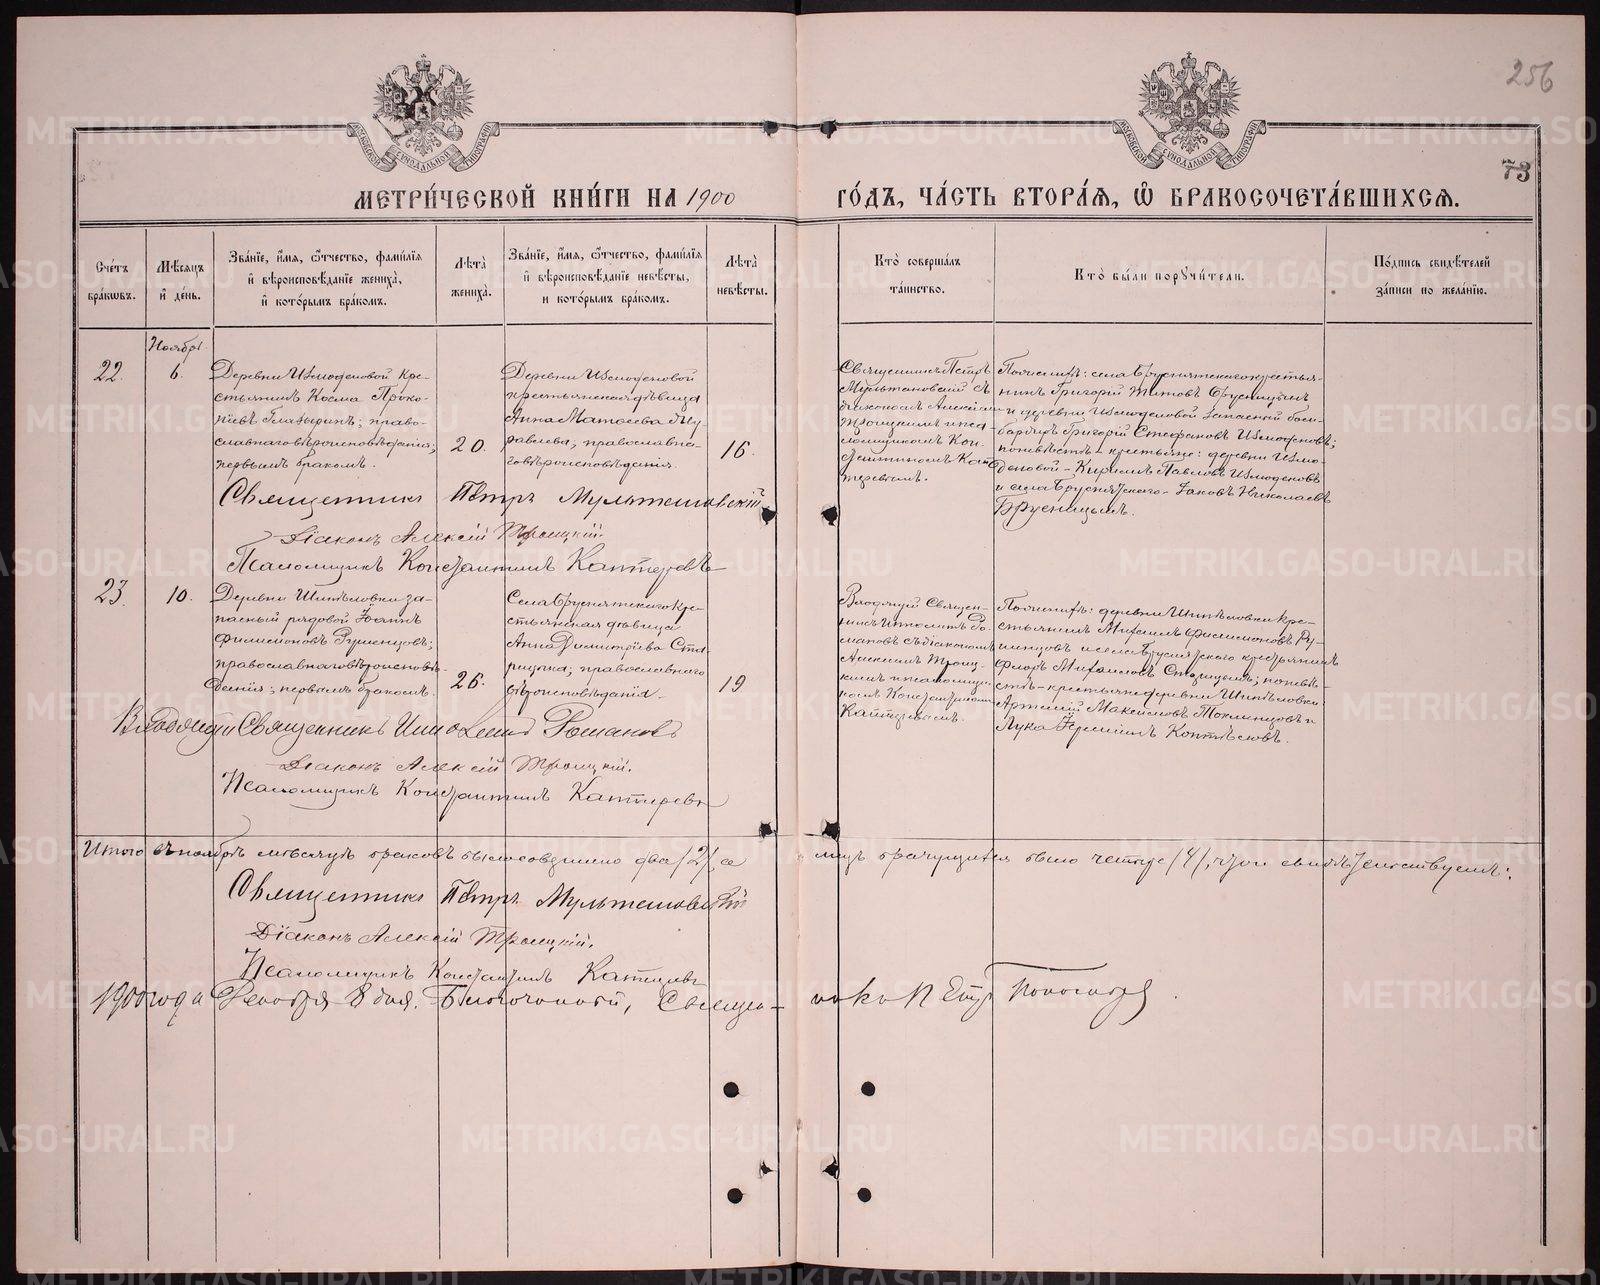 256
73
МОСКОВСКОЙ СѴНОДАЛЬНОЙ ТИПОГРАФІИ
МОСКОВСКОЙ СѴНОДАЛЬНОЙ ТИПОГРАФІИ
МЕТРИ́ЧЕСКОЙ КНИ́ГИ НА 1900 ГО́ДЪ, ЧА́СТЬ ВТОРА́Я, Ѡ҆ БРАКОСОЧЕТА́ВШИХСЯ.
Сче́тъ бра́кѡвъ.
Мѣ́сяцъ и҆ де́нь.
Зва́нїе, и҆́мя, ѻ҆́тчество, фами́лїя
и҆ вѣроисповѣ́данїе жениха̀,
и҆ кото́рымъ бра́комъ.
Лѣ́та̀ жениха̀.
Зва́нїе, и҆́мя, ѻ҆́тчество, фами́лїя
и҆ вѣроисповѣ́данїе невѣ́сты,
и кото́рымъ бра́комъ.
Лѣ́та̀ невѣ́сты.
Кто̀ соверша́лъ
та́инство.
Кто̀ бы́ли поручи́тели.
По́дпись свидѣ́телей
за́писи по жела́нїю.
Ноябрь
22.
6.
Деревни Измоденовой кре-
стьянинъ Косма Проко-
піевъ ; право-
славнаго вѣроисповѣданія;
первымъ бракомъ.
20.
Деревни Измоденовой
крестьянская дѣвица
Анна Матѳеева Жу-
равлева; православна-
го вѣроисповѣданія.
16.
Священникъ Петръ
Мультановскій съ
діакономъ Алексіемъ
Троицкимъ и пса-
ломщикомъ Кон-
стантиномъ Кат-
теревымъ.
По женихѣ: села Бруснятскаго крестья-
нинъ Григорій Титовъ Брусницынъ
и деревни Измоденовой запасной бом-
бардиръ Григорій Стефановъ Измоденовъ;
по невѣстѣ – крестьяне: деревни Измо-
деновой – Кириллъ Павловъ Измоденовъ
и села Бруснятскаго – Іаковъ Николаевъ
Брусницынъ.
Священникъ Петръ Мультановскій
Діаконъ Алексій Троицкій.
Псаломщикъ Константинъ Каттеревъ
23.
10.
Деревни Шипѣловки за-
пасный рядовой Іоаннъ
Филимоновъ Румянцовъ;
православнаго вѣроисповѣ-
данія; первымъ бракомъ.
26.
Села Бруснятскаго кре-
стьянская дѣвица
Анна Димитріева Ста-
рицына; православнаго
вѣроисповѣданія.
19
Владѣющій Священ-
никъ Ро-
мановъ съ діакономъ
Алексіемъ Троиц-
кимъ и псаломщи-
комъ Константиномъ
Каттеревымъ.
По женихѣ: деревни Шипѣловки кре-
стьянинъ Михаилъ Филимоновъ Ру-
мянцовъ и села Бруснятскаго крестьянинъ
Флоръ Михаиловъ Старицынъ; по невѣ-
стѣ – крестьяне деревни Шипѣловки
Артемій Максимовъ и
Лука .
Священникъ Романовъ
Діаконъ Алексій Троицкій.
Псаломщикъ Константинъ Каттеревъ
Итого въ ноябрѣ мѣсяцѣ браковъ было совершено два /2/, а лицъ брачущихся было четыре /4/, въ чемъ и свидѣтельствуемъ:
Священникъ Петръ Мультановскій
Діаконъ Алексій Троицкій.
Псаломщикъ Константинъ Каттеревъ
1900 года Декабря 8 дня. Благочинный, Священникъ Петръ
METRIKI.GASO-URAL.RU